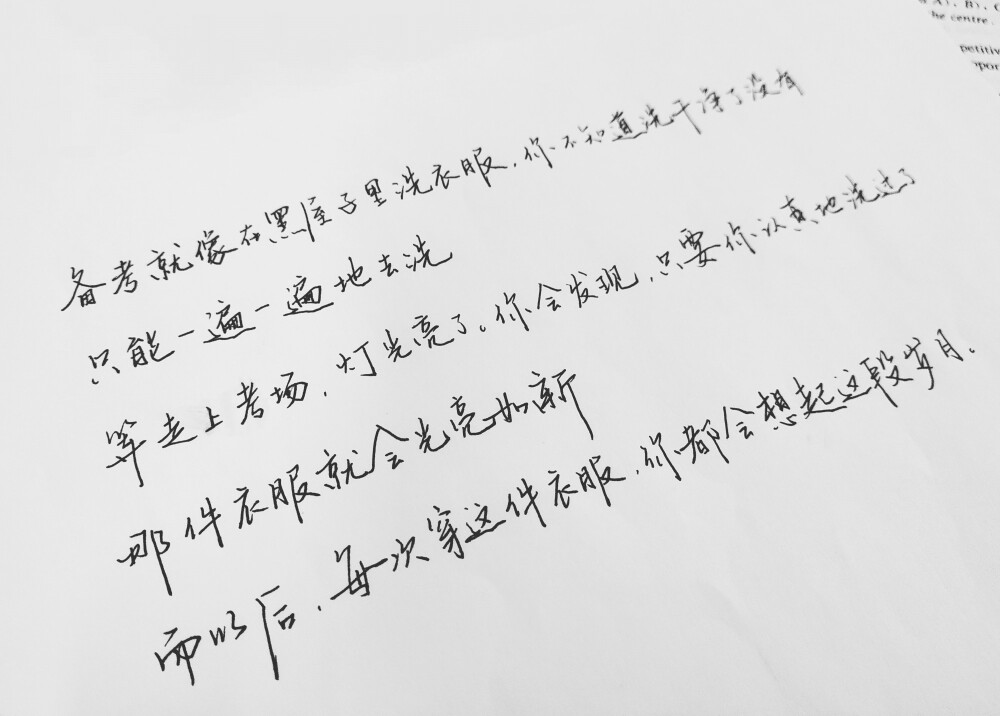 备考就像在黑屋子里洗衣服,你不知道洗干净了没有
只能一遍一遍地去洗
等走上考场,灯光亮了。你会发现,只要你认真地洗过了
那件衣服就会光亮如新
而以后,每次穿这件衣服,你都会想起这段岁月.
A)、B)、C
he centre.
petitiv